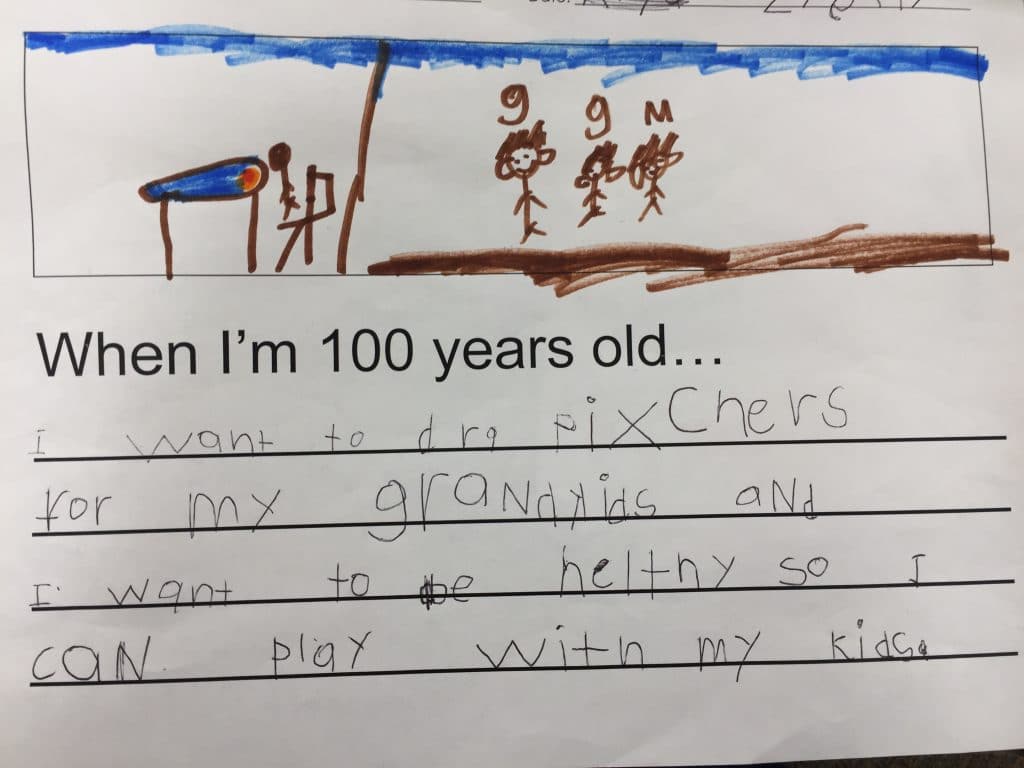 g g M
When I'm 100 years old...
I want to dra pixChers
for my graNdkids aNd
I want to be helthy so I
caN play with my kids.